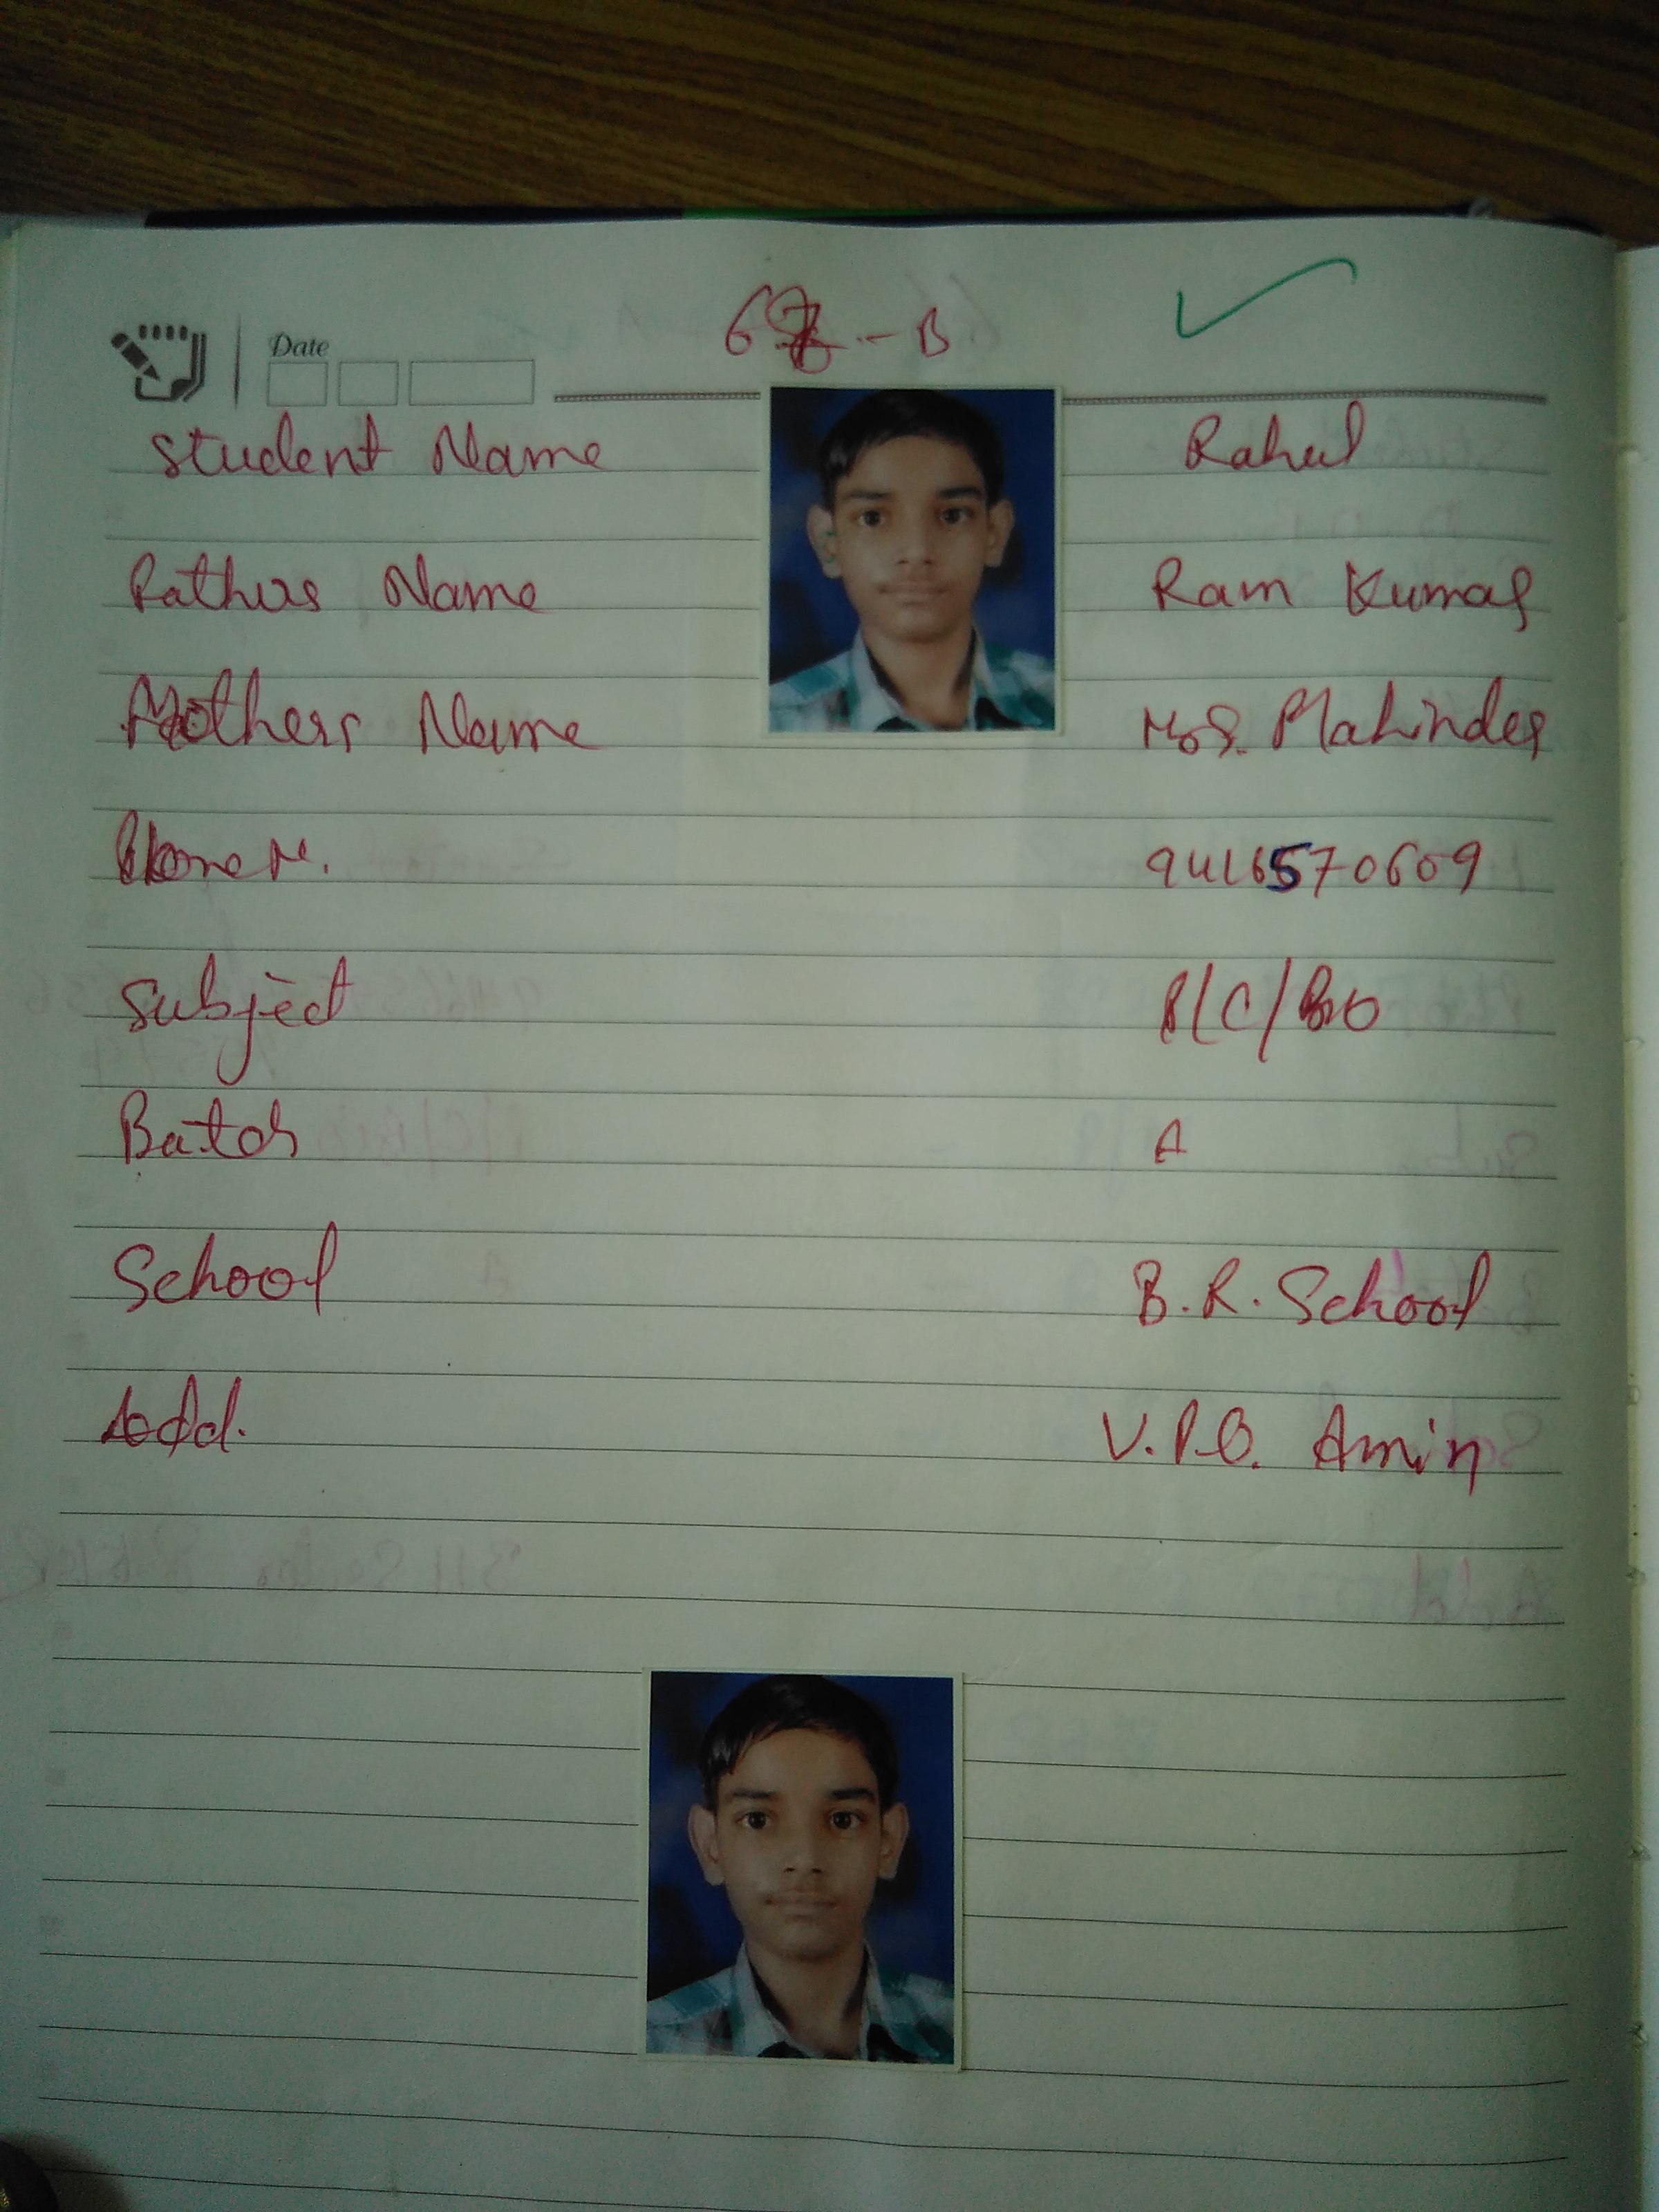 Date
6 - B
Student Name Rahul
Fathers Name Ram Kumar
Mothers Name Mrs. Mahinder
Phone N. 9416570609
Subject P/C/Bio
Batch A
School B.R. School
Add. V.P.O. Amin